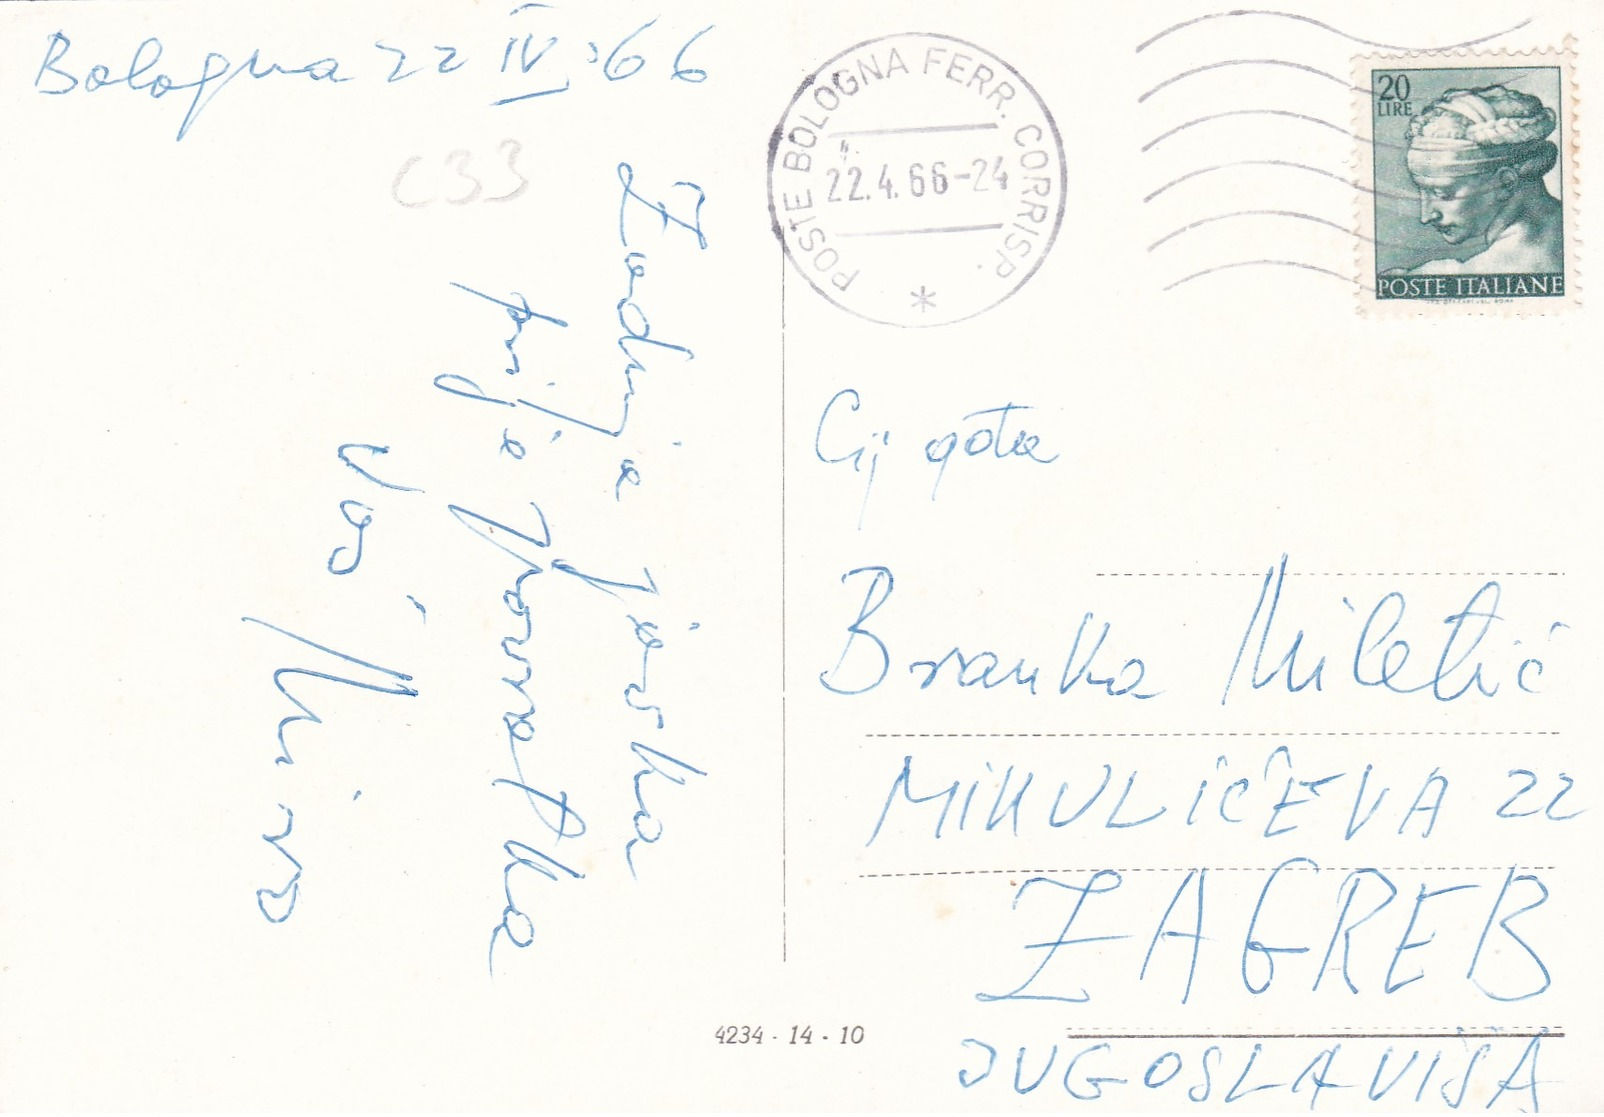 Bologna 22 IV '66
C33
Zadnja javka
prije povratka
Vaš
Miro
POSTE BOLOGNA FERR. CORRISP.
22.4.66-24
20
LIRE
POSTE ITALIANE
Cij
Branka Miletić
MIKULIĆEVA 22
ZAGREB
JUGOSLAVIJA
4234 · 14 · 10